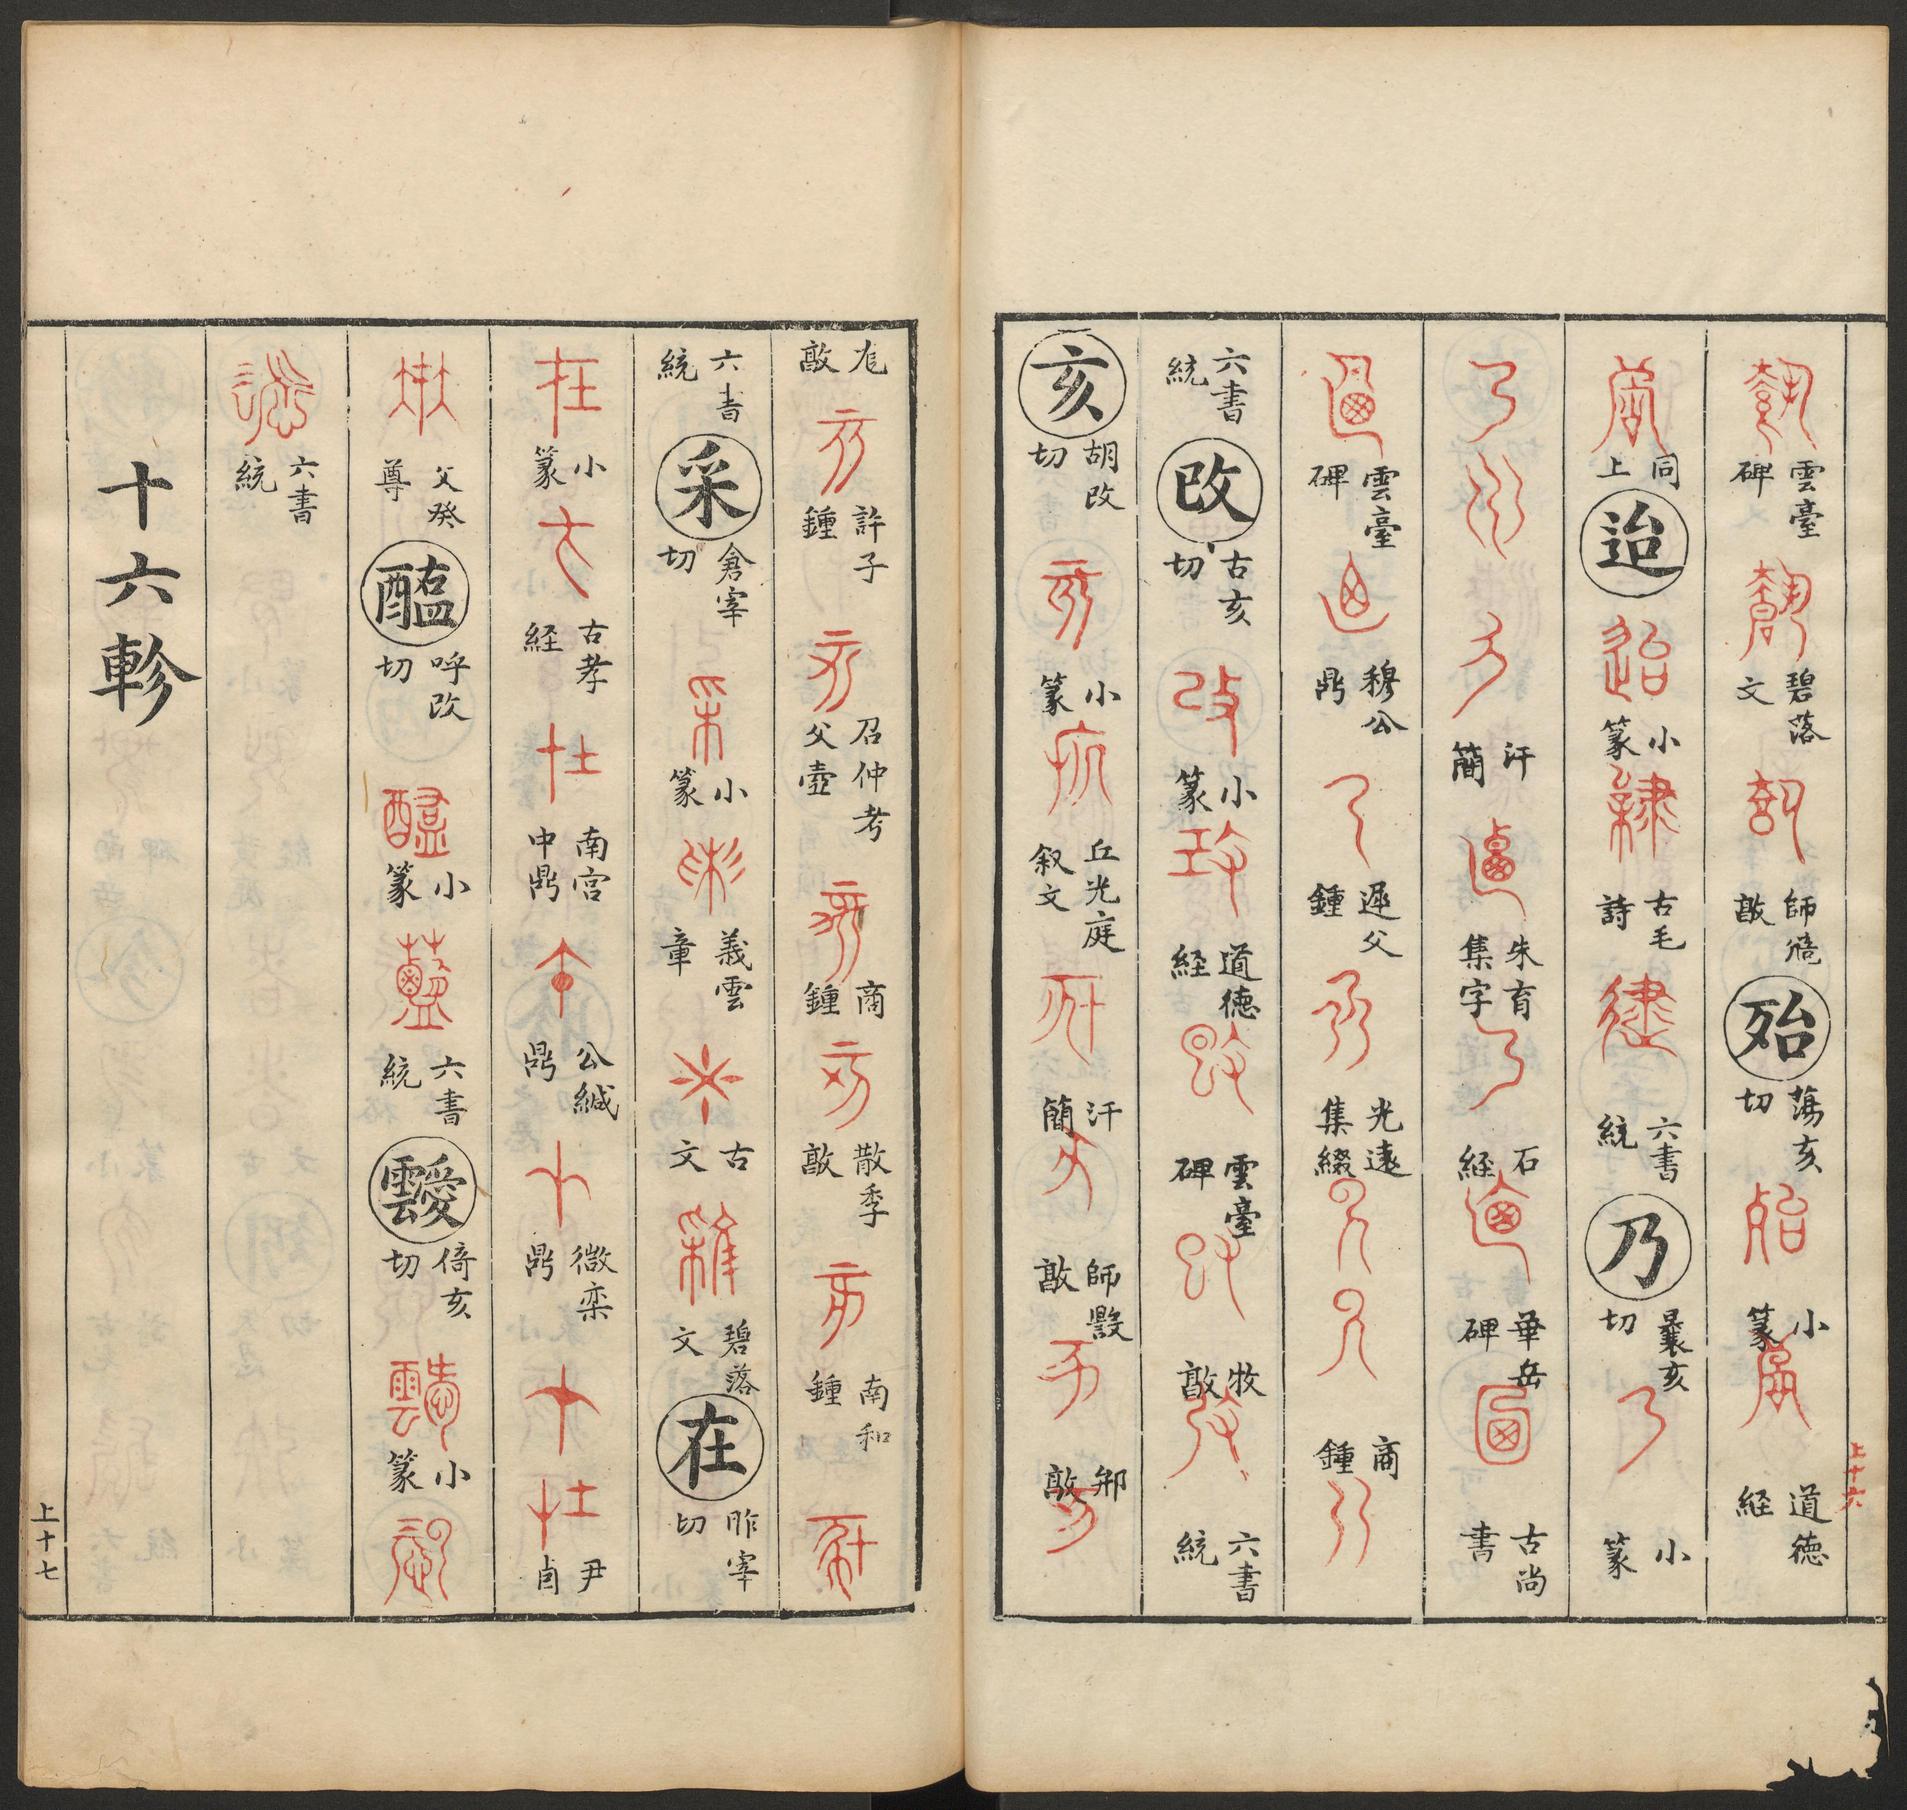 雲臺碑 碧落文 師㾓敦 殆 蕩亥切 小篆 道德経
同上 迨 小篆 古毛詩 六書統 乃 曩亥切 小篆
汗簡 朱育集字 石経 華岳碑 古尚書
雲臺碑 穆公鼎 遲父鐘 光遠集綴 商鐘
六書統 改 古亥切 小篆 道德経 雲臺碑 牧敦 六書統
亥 胡改切 小篆 丘光庭叙文 汗簡 師㲄敦 邾敦
上十六
敦 許子鐘 召仲考父壺 商鐘 散季敦 南和鐘
六書統 采 倉宰切 小篆 義雲章 古文 碧落文 在 昨宰切
小篆 古孝経 南宮中鼎 公緘鼎 微欒鼎 尹卣
父癸尊 醢 呼改切 小篆 六書統 靉 倚亥切 小篆
六書統
十六軫
上十七